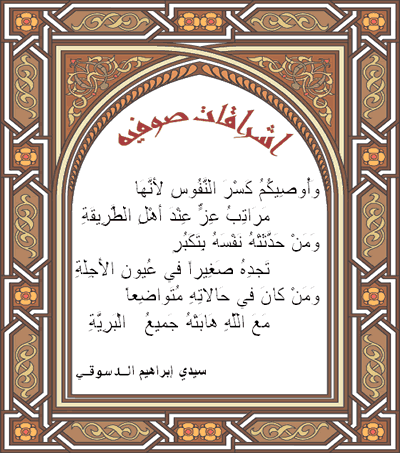 اشراقات صوفيه
وأُوصِيكُمُ كَسْرَ النُّفُوسِ لأنَّها
مَرَاتِبُ عِزٍّ عِنْدَ أهْلِ الطَّرِيقَةِ
وَمَنْ حَدَّثَتْهُ نَفْسَهُ بتَكَبُر
تَجِدِهُ صَغِيراً في عُيون الأجِلَةِ
وَمَنْ كانَ في حَالاتِهِ مُتَواضِعاً
مَعَ اللّهِ هَابَتْهُ جَميعُ الْبَرِيَّةِ
سيدي إبراهيم الـدسـوقـي